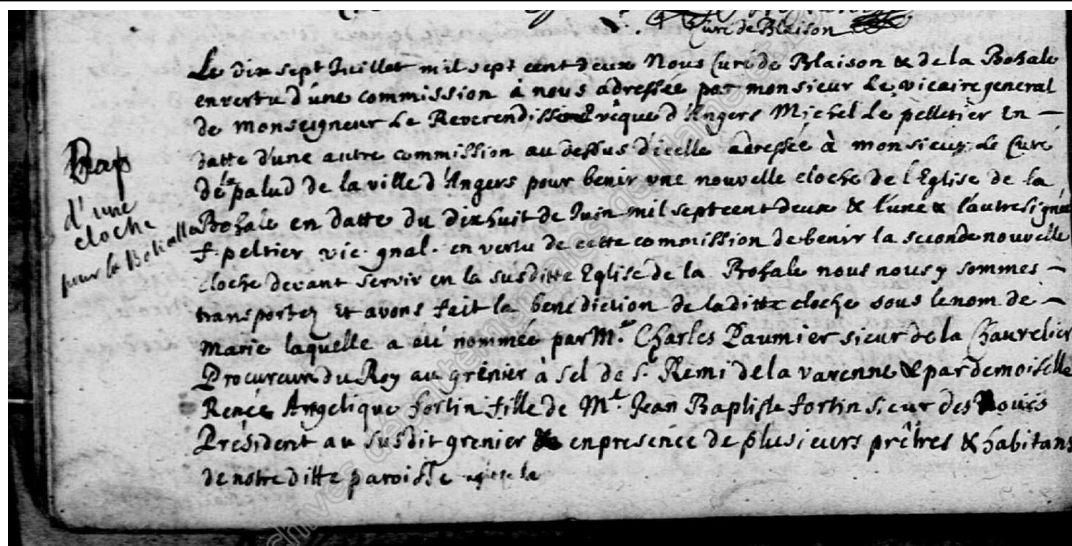 Curé de Blaison
Le dix sept Juillet mil sept cent deux Nous Curé de Blaison & de la Bohale
en vertu d'une commission à nous adressée par monsieur Le vicaire general
de monseigneur Le Reverendissime Evêque d'Angers Michel Le pelletier En –
datte d'une autre commission au dessus d'icelle adressée à monsieur Le Curé
de palud de la ville d'Angers pour benir une nouvelle cloche de l'Eglise de la
Bohale en datte du dix huit de Juin mil sept cent deux & l'une & l'autre signée
f. peltier vic. gnal. en vertu de cette commission de benir la seconde nouvelle
cloche devant servir en la susditte Eglise de la Bohale nous nous y sommes –
transportez Et avons fait la benediction de laditte cloche sous le nom de –
Marie laquelle a eté nommée par Mr. Charles Paumier sieur de la Chaurelier
Procureur du Roy au grenier à sel de S. Remi de la varenne & par demoiselle
Renée Angelique fortin fille de Mr. Jean Baptiste fortin sieur des Nouës
Président au susdit grenier en presence de plusieurs prêtres & habitans
de notre ditte paroisse
Bap
d'une
cloche
pour la Bohalle